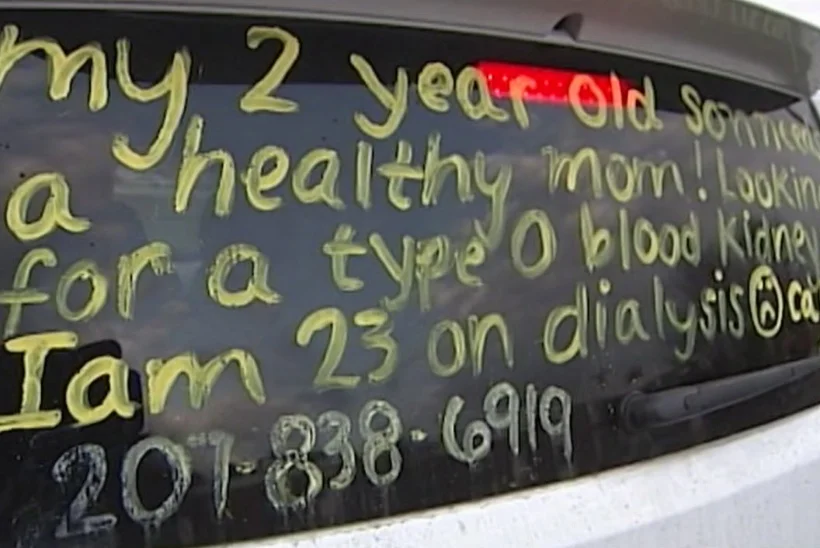 my 2 year old son needs
a healthy mom! Lookin
for a type O blood kidney
I am 23 on dialysis ca
207-838-6919